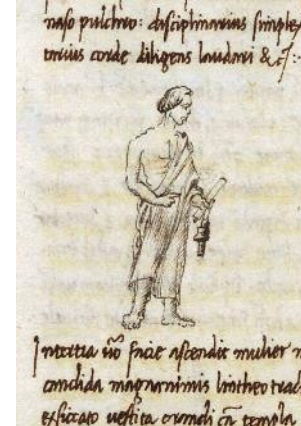 naso pulchro: disciplinarius simplex
totius corde diligens laudari &c̃:
In tertia ũo facie ascendit mulier
candida magnanimis lintheo
exsiccato vestita eramdi cã templa